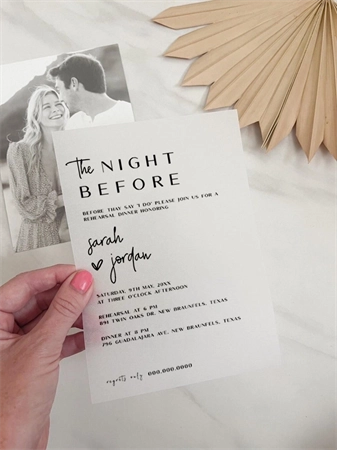 the NIGHT
BEFORE
BEFORE THAY SAY 'I DO' PLEASE JOIN US FOR A
REHEARSAL DINNER HONORING
sarah
jordan
SATURDAY, 9TH MAY, 20XX
AT THREE O'CLOCK AFTERNOON
REHEARSAL AT 6 PM
894 TWIN OAKS DR. NEW BRAUNFELS, TEXAS
DINNER AT 8 PM
796 GUADALAJARA AVE. NEW BRAUNFELS, TEXAS
regrets only 000.000.0000